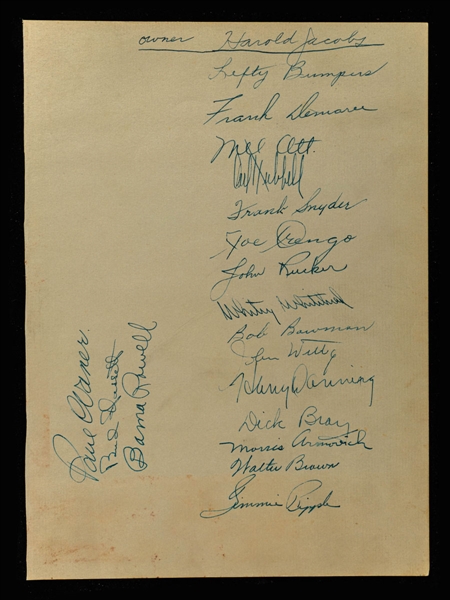 owner Harold Jacobs
Lefty Bumpers
Frank Demaree
Mel Ott.
Carl Hubbell
Frank Snyder
Joe Orengo
John Rucker
Whitey Whitehead
Bob Bowman
Jim Witty
Harry Danning
Dick Bray
Morris Arnovich
Walter Brown
Jimmie Ripple
Paul Waner.
Bama Rowell